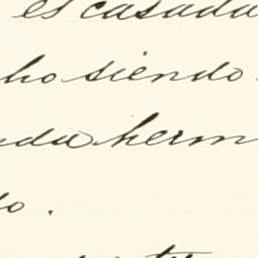 es casada
ho siendo
ada herm
do.